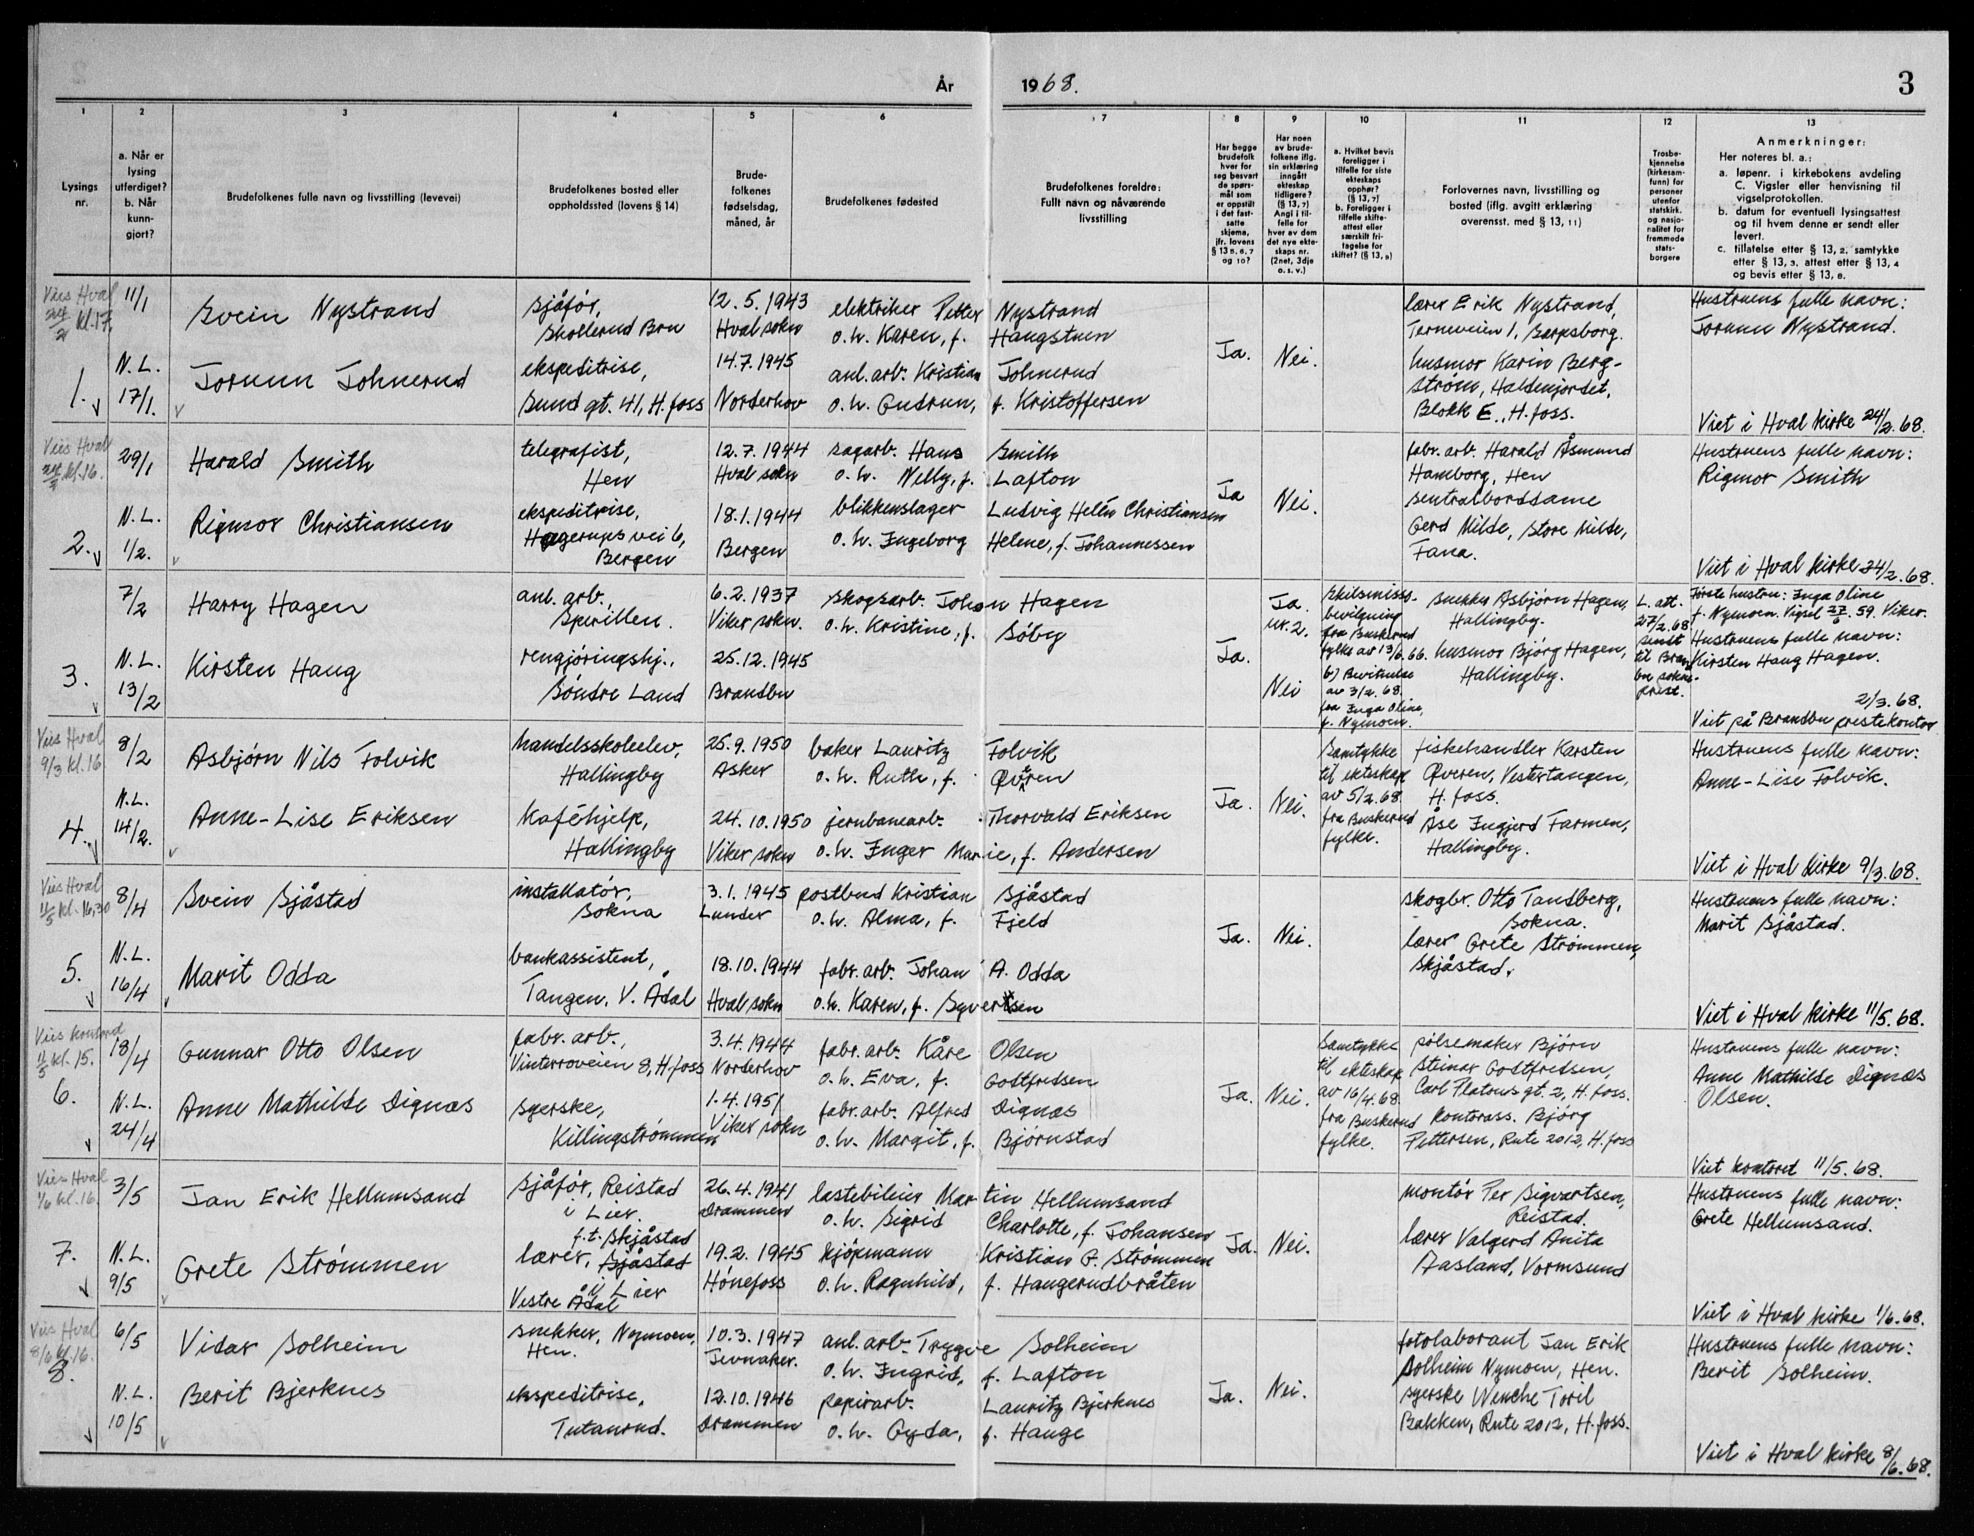 År 1968. 3
1 2 3 4 5 6 7 8 9 10 11 12 13
Lysings nr.
a. Når er
lysing
utferdiget?
b. Når
kunn-
gjort?
Brudefolkenes fulle navn og livsstilling (levevei)
Brudefolkenes bosted eller
oppholdssted (lovens § 14)
Brude-
folkenes
fødselsdag,
måned, år
Brudefolkenes fødested
Brudefolkenes foreldre:
Fullt navn og nåværende
livsstilling
Har begge
brudefolk
hver for
seg besvart
de spørs-
mål som
er oppstilt
i det fast-
satte
skjema,
jfr. lovens
§ 13 5, 6, 7
og 10?
Har noen
av brude-
folkene iflg.
sin erklæring
inngått
ekteskap
tidligere?
(§ 13, 7)
Angi i til-
felle for
hver av dem
det nye ekte-
skaps nr.
(2net, 3dje
o. s. v.)
a. Hvilket bevis
foreligger i
tilfelle for siste
ekteskaps
opphør?
(§ 13, 7)
b. Foreligger i
tilfelle skifte-
attest eller
særskilt fri-
tagelse for
skiftet? (§ 13, 8)
Forlovernes navn, livsstilling og
bosted (iflg. avgitt erklæring
overensst. med § 13, 11)
Trosbe-
kjennelse
(kirkesam-
funn) for
personer
utenfor
statskirk.
og nasjo-
nalitet for
fremmede
stats-
borgere
Anmerkninger:
Her noteres bl. a.:
a. løpenr. i kirkebokens avdeling
C. Vigsler eller henvisning til
vigselprotokollen.
b. datum for eventuell lysingsattest
og til hvem denne er sendt eller
levert.
c. tillatelse etter § 13, 2, samtykke
etter § 13, 3, attest etter § 13, 4
og bevis etter § 13, 6.
Vies Hval
24/2 kl.17.
1.
11/1
N.L.
17/1.
Svein Nystrand
Jorunn Johnerud
sjåfør,
Skollerud Bru
ekspeditrise,
Sund gt. 41, H.foss
12.5.1943
Hval sokn
14.7.1945
Norderhov
elektriker Petter Nystrand
o.h. Karen, f. Haugstuen
anl.arb. Kristian Johnerud
o.h. Gudrun, f. Kristoffersen
Ja. Nei.
lærer Erik Nystrand,
Terneveien 1, Sarpsborg.
husmor Karin Berg-
strøm, Haldenjordet,
Blokk E., H.foss.
Hustruens fulle navn:
Jorunn Nystrand.
Viet i Hval kirke 24/2.68.
Vies Hval
24/2 kl.16.
2.
29/1
N.L.
1/2.
Harald Smith
Rigmor Christiansen
telegrafist,
Hen
ekspeditrise,
Hagerups vei 6,
Bergen
12.7.1944
Hval sokn
18.1.1944
Bergen
sagarb. Hans Smith
o.h. Nelly, f. Lafton
blikkenslager Ludvig Helén Christiansen
o.h. Ingeborg Helene, f. Johannessen
Ja Nei.
fabr. arb. Harald Åsmund
Hamborg, Hen
sentralborddame
Gerd Milde, Store Milde,
Fana.
Hustruens fulle navn:
Rigmor Smith
Viet i Hval kirke 24/2.68.
3.
7/2
N.L.
13/2
Harry Hagen
Kirsten Haug
anl. arb.,
Sperillen.
rengjøringshj.,
Søndre Land
6.2.1937
Viker sokn.
25.12.1945
Brandbu
skogsarb. Johan Hagen
o.h. Kristine, f. Søby
Ja.
Ja. nr.2.
Nei
Skilsmisse-
bevilgning
fra Buskerud
fylke av 13/6.66.
b) Bevitnelse
av 3/2.68.
fra Inga Oline,
f. Nymoen.
snekker Asbjørn Hagen,
Hallingby.
husmor Bjørg Hagen,
Hallingby.
L.att.
27/2.68
sendt
til Brand-
bu sokne-
prest.
Første hustru: Inga Oline
f. Nymoen. Vigsel 27/6.59. Viker.
Hustruens fulle navn:
Kirsten Haug Hagen.
2/3.68.
Viet på Brandbu prestekontor
Vies Hval
9/3 kl.16
4.
8/2
N.L.
14/2.
Asbjørn Nils Folvik
Anne-Lise Eriksen
handelsskoleelev,
Hallingby
Kaféhjelp,
Hallingby
25.9.1950
Asker
24.10.1950
Viker sokn
baker Lauritz Folvik
o.h. Ruth, f. Øveren
jernbanearb. Thorvald Eriksen
o.h. Inger Marie, f. Andersen
Ja. Nei.
Samtykke
til ekteskap
av 5/2.68
fra Buskerud
fylke.
fiskehandler Karsten
Øveren, Vestertangen,
H.foss.
Åse Ingjerd Farmen,
Hallingby.
Hustruens fulle navn:
Anne-Lise Folvik.
Viet i Hval kirke 9/3.68.
Vies Hval
11/5 kl.16,30
5.
8/4
N.L.
16/4
Svein Sjåstad
Marit Odda
installatør,
Sokna
bankassistent,
Tangen, V. Ådal
3.1.1945
Lunder
18.10.1944
Hval sokn
postbud Kristian Sjåstad
o.h. Alma, f. Fjeld
fabr.arb. Johan A. Odda
o.h. Karen, f. Syvertsen
Ja. Nei.
skogbr. Otto Tandberg,
Sokna.
lærer Grete Strømmen,
Skjåstad.
Hustruens fulle navn:
Marit Sjåstad.
Viet i Hval kirke 11/5.68.
Vies kontoret
11/5 kl.15.
6.
18/4
N.L.
24/4
Gunnar Otto Olsen
Anne Mathilde Dignæs
fabr. arb.,
Vinterroveien 8, H.foss
syerske,
Killingstrømmen
3.4.1944
Norderhov
1.4.1951
Viker sokn
fabr. arb. Kåre Olsen
o.h. Eva, f. Gottfredsen
fabr.arb. Alfred Dignæs
o.h. Margit, f. Bjørnstad
Ja. Nei.
Samtykke
til ekteskap
av 16/4.68
fra Buskerud
fylke.
pølsemaker Bjørn
Steinar Gottfredsen,
Carl Platous gt. 2, H.foss.
kontorass. Bjørg
Pettersen, Rute 2012, H.foss
Hustruens fulle navn:
Anne Mathilde Dignæs
Olsen.
Viet kontoret 11/5.68.
Vies Hval
1/6 kl.16.
7.
3/5
N.L.
9/5
Jan Erik Hellumsand
Grete Strømmen
sjåfør, Reistad
i Lier.
f.t. Skjåstad
lærer, Sjåstad
i Lier
Vestre Ådal
26.4.1941
Drammen
19.2.1945
Hønefoss
lastebileier Martin Hellumsand
o.h. Sigrid Charlotte, f. Johansen
kjøpmann Kristian G. Strømmen
o.h. Ragnhild, f. Haugerudbråten
Ja. Nei.
montør Per Sigvartsen,
Reistad.
lærer Valgerd Anita
Aasland, Vormsund
Hustruens fulle navn:
Grete Hellumsand.
Viet i Hval kirke 1/6.68.
Vies Hval
8/6 kl.16.
8.
6/5
N.L.
10/5
Vidar Solheim
Berit Bjerknes
snekker, Nymoen,
Hen.
ekspeditrise,
Tutanrud.
10.3.1947
Jevnaker.
12.10.1946
Drammen
anl. arb. Trygve Solheim
o.h. Ingrid, f. Lafton
papirarb. Lauritz Bjerknes
o.h. Gyda, f. Hauge
Ja. Nei.
fotolaborant Jan Erik
Solheim Nymoen, Hen.
syerske Wenche Toril
Bakken, Rute 2012, H.foss.
Hustruens fulle navn:
Berit Solheim.
Viet i Hval kirke 8/6.68.